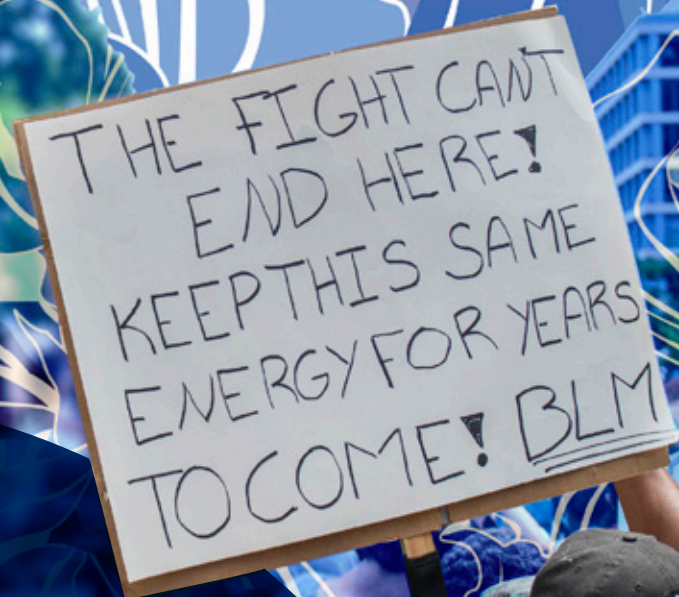 THE FIGHT CANT
END HERE!
KEEP THIS SAME
ENERGY FOR YEARS
TO COME! BLM